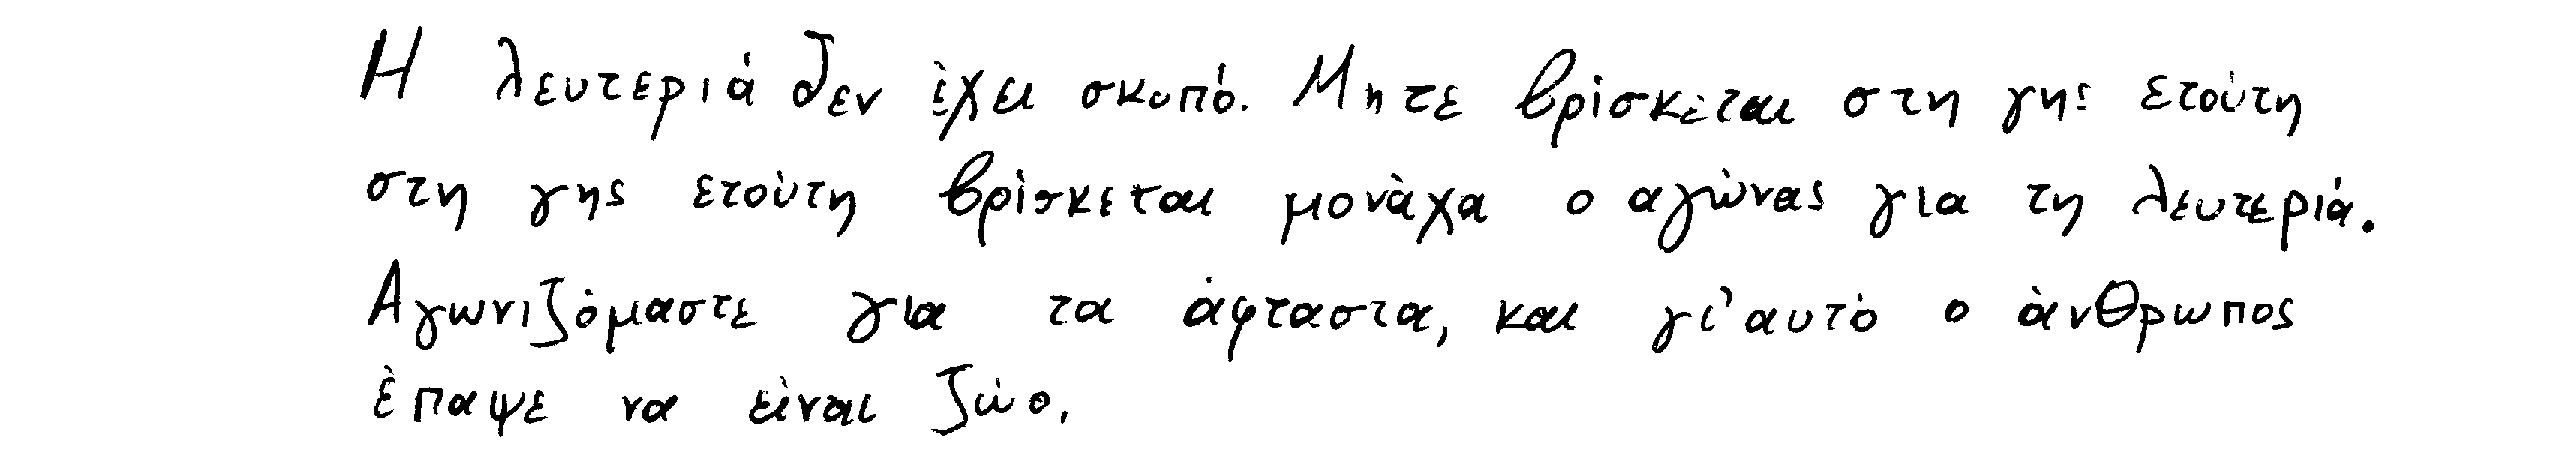 Η λευτεριά δεν έχει σκοπό. Μητε βρίσκεται στη γης ετούτη
στη γης ετούτη βρίσκεται μονάχα ο αγώνας για τη λευτεριά.
Αγωνιζόμαστε για τα άφταστα, και γι'αυτό ο άνθρωπος
έπαψε να είναι ζώο.